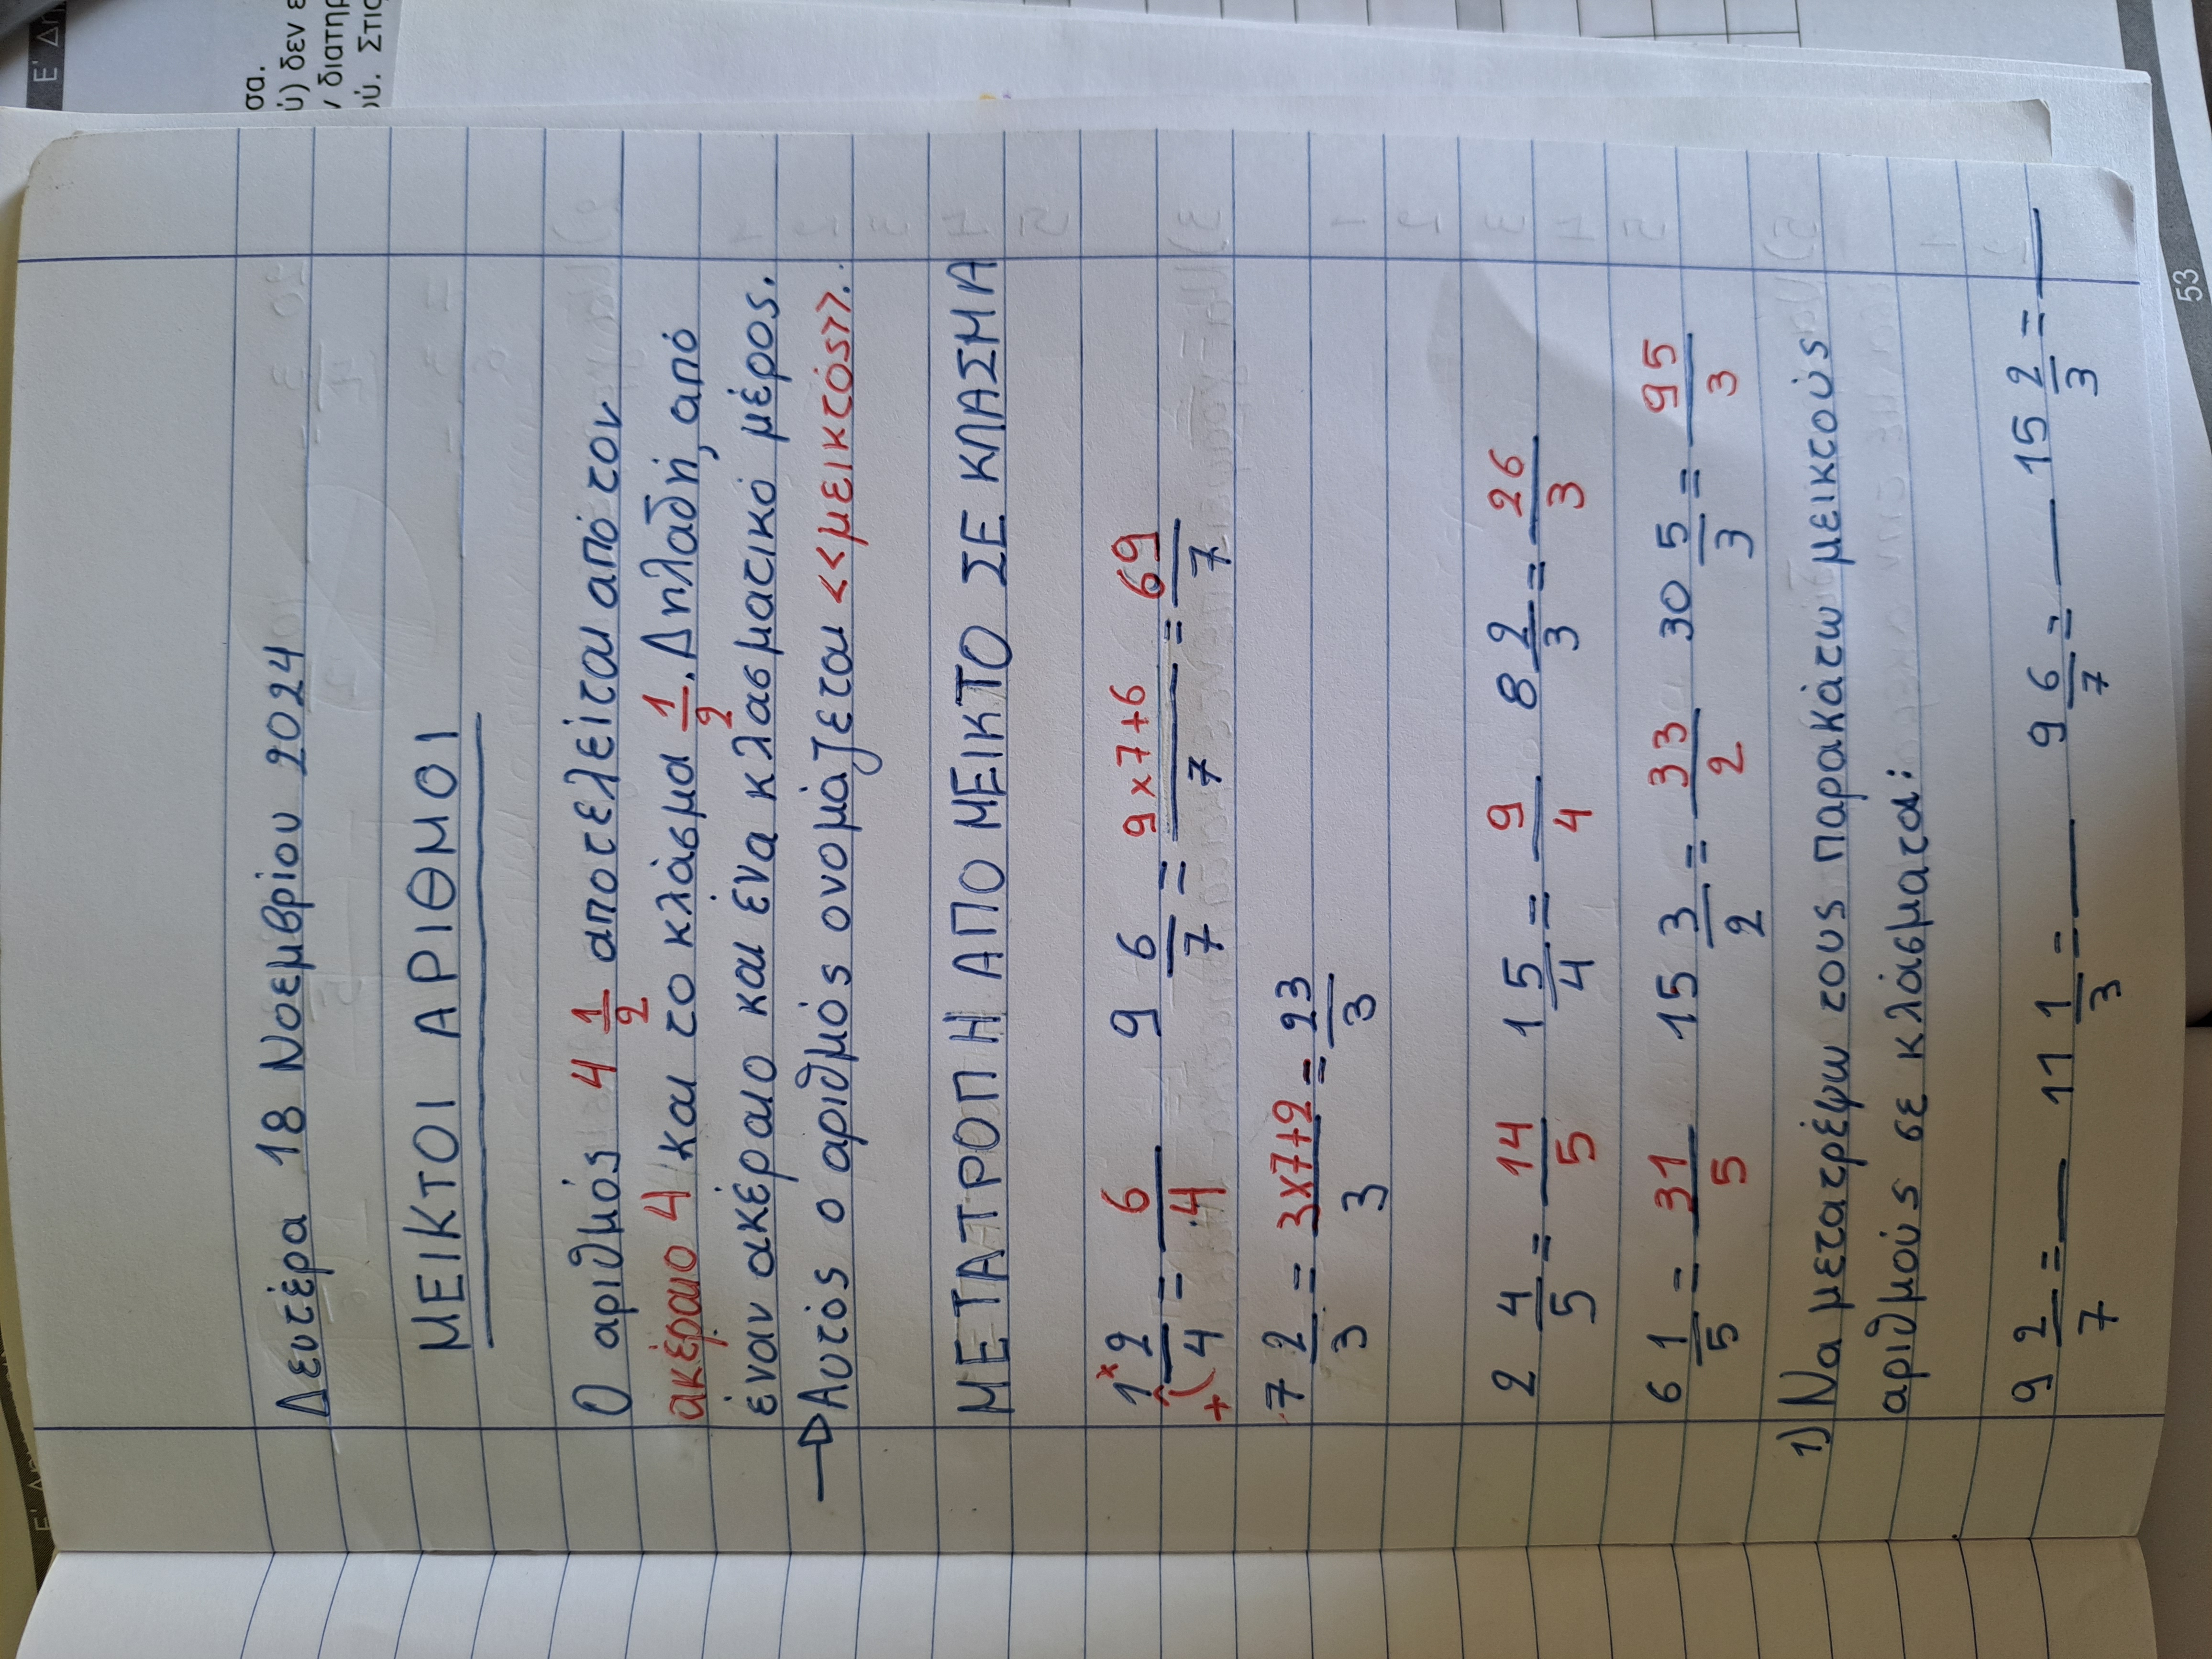 Ε' Δη
σα.
ύ) δεν ε
ν διατηρ
ού. Στις
Δευτέρα 18 Νοεμβρίου 2024
ΜΕΙΚΤΟΙ ΑΡΙΘΜΟΙ
Ο αριθμός 4 1/2 αποτελείται από τον
ακέραιο 4 και το κλάσμα 1/2. Δηλαδή, από
έναν ακέραιο και ένα κλασματικό μέρος.
→ Αυτός ο αριθμός ονομάζεται <<μεικτός>>.
ΜΕΤΑΤΡΟΠΗ ΑΠΟ ΜΕΙΚΤΟ ΣΕ ΚΛΑΣΜΑ
1 x 2/4 + = 6/4 9 6/7 = 9x7+6/7 = 69/7
7 2/3 = 3x7+2/3 = 23/3
2 4/5 = 14/5 1 5/4 = 9/4 8 2/3 = 26/3
6 1/5 = 31/5 15 3/2 = 33/2 30 5/3 = 95/3
1) Να μετατρέψω τους παρακάτω μεικτούς
αριθμούς σε κλάσματα:
9 2/7 = __ 11 1/3 = __ 9 6/7 = __ 15 2/3 = __
53